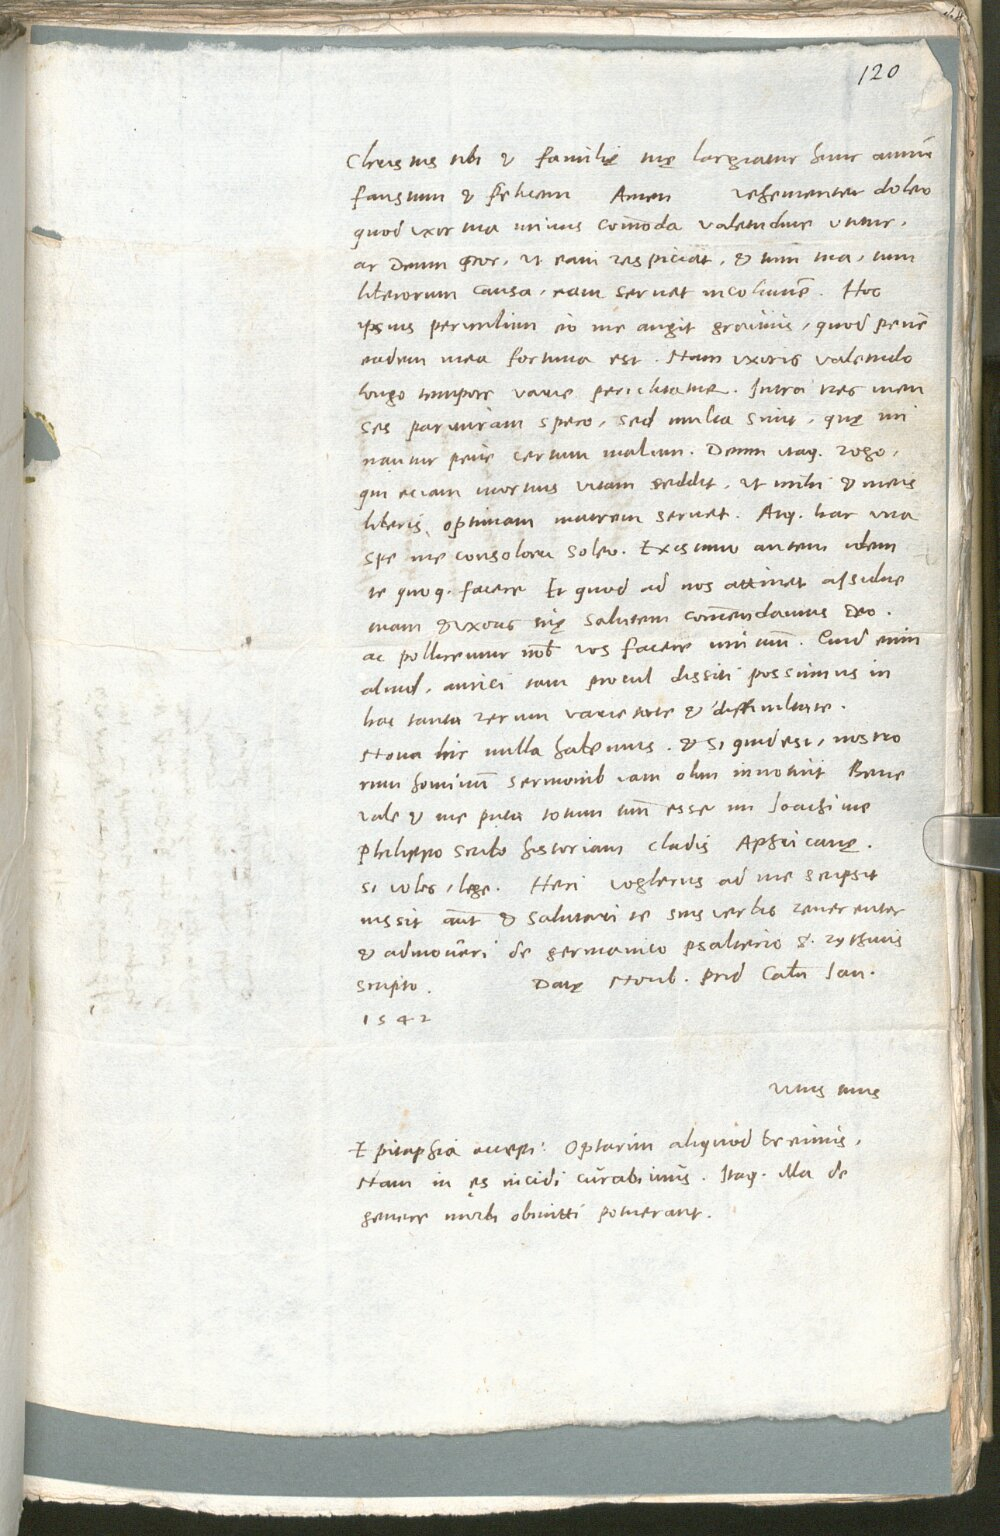 120
Christus tibi & familię tuę largiatur hunc annū
faustum & felicem Amen Vehementer doleo
quod vxor tua minus com̄oda valetudine vtitur.
ac Deum oror, vt eam respiciat, & tum tua, tum
liberorum causa, eam seruet incolumē. Hoc
ipsius periculum eo me angit grauius, quod penè
eadem mea fortuna est. Nam vxoris valetudo
longo tempore varie periclitatur. Intra tres men
ses parituram spero, sed multa sunt, quę mi
nantur penè certum malum. Deum itaq. rogo,
qui eciam mortuis vitam reddit, vt mihi & meis
liberis, optimam matrem seruet. Atq. hac vna
spe me consolari soleo. Existimo autem idem
te quoq. facere Et quod ad nos attinet assidue
tuam & vxoris tuę salutem com̄endamus Deo.
ac pollicemur nob vos facere mutuū. Quid enim
aliud, amici tam procul dissiti possimus in
hac tanta rerum varietate & difficultate.
Noua hic nulla habemus. & si quid est, nostro
rum hominū sermonib iam olim innotuit Bene
vale & me puta totum tuū esse mi Ioachime
Philippo scribo historiam cladis Aphricanę.
si voles, lege. Heri Voglerus ad me scripsit
iussit aūt & salutari te suis verbis reuerenter
& admoneri de germanico psalterio & rythmis
scripto. Datę Norib. prid Caln Ian.
1542
Vitus tuus
Epitaphia accepi. Optarim aliquod breuius,
Nam in ęs incidi curabimus. Itaq. illa de
genere morbi obmitti potuerant.